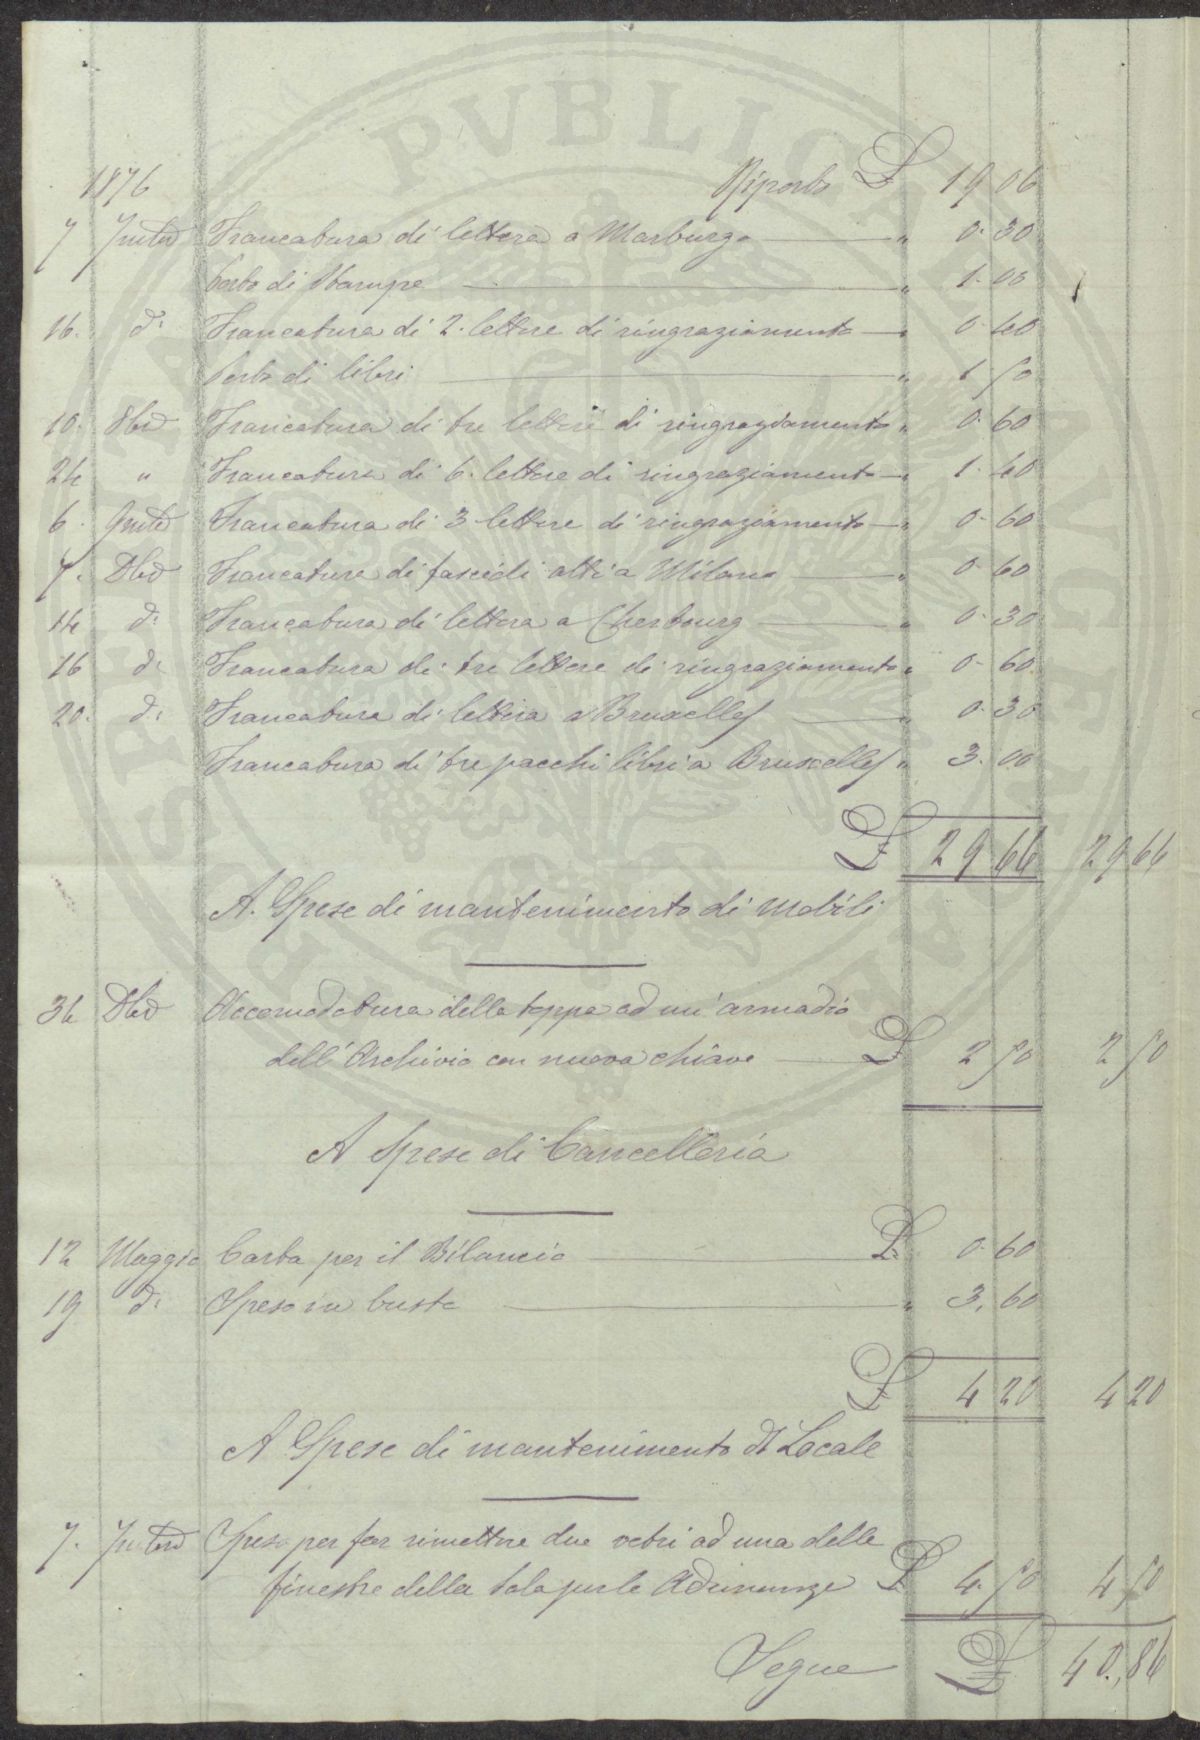 PVBLICA
1876 Riporto £ 19 06
7 7mbre Francatura di lettera a Marburgo " 0. 30
Porto di Stampe " 1. 00
16. d.° Francatura di 2. lettere di ringraziamento " 0. 40
Porto di libri " 1 50
10. 8bre Francatura di tre lettere di ringraziamento " 0. 60
24 " Francatura di 6. lettere di ringraziamento " 1. 40
6. 9mbre Francatura di 3 lettere di ringraziamento " 0. 60
7. Dbre Francatura di fascicoli atti a Milano " 0. 60
14 d.° Francatura di lettera a Cherbourg " 0. 30
16 d.° Francatura di tre lettere di ringraziamento " 0. 60
20. d.° Francatura di lettera a Bruxelles " 0. 30
Francatura di tre pacchi libri a Bruxelles " 3. 00
£ 29 66 29 66
A. Spese di mantenimento di Mobili
Dbre Accomodatura della toppa ad un' armadio
dell'Archivio con nuova chiave £ 2 50 2 50
A Spese di Cancelleria
12 Maggio Carta per il Bilancio £ 0. 60
19 d.° Spesa in buste " 3. 60
£ 4 20 4 20
A Spese di mantenimento di Locale
7. 7mbre Spesa per far rimettere due vetri ad una delle
finestre della Sala per le Adunanze £ 4. 50 4 50
Segue £ 40,86